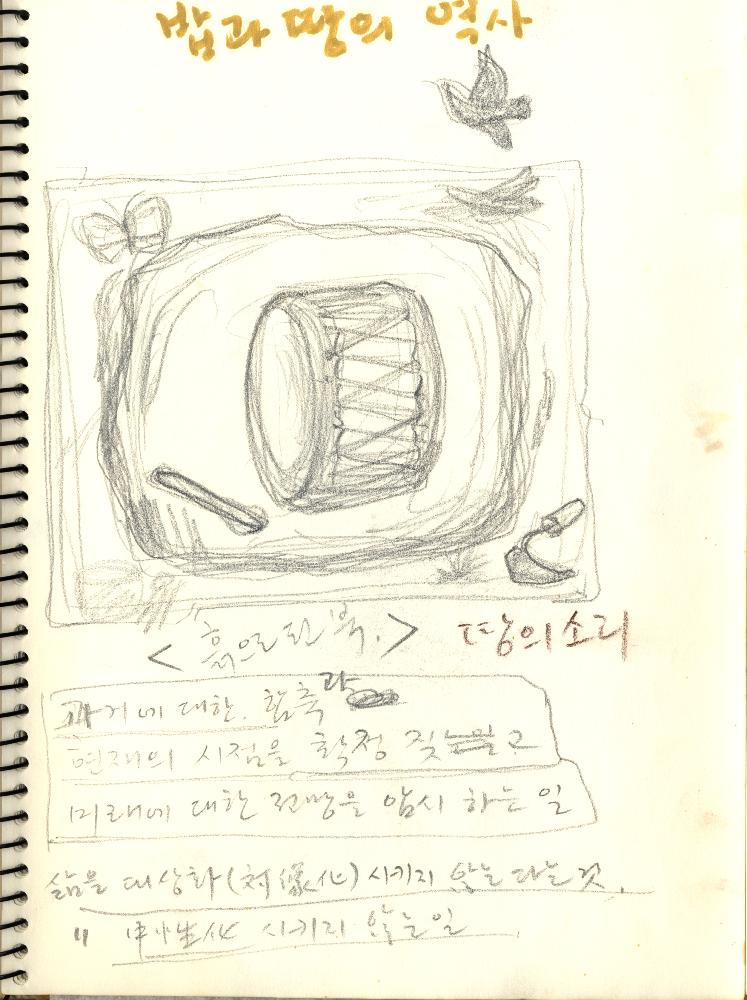 밥과 땅의 역사
<흙으로 된 북.> 땅의 소리
과거에 대한. 함축과
현재의 시점을 확정 짓고
미래에 대한 전망을 암시 하는 일
삶을 대상화(対像化) 시키지 않는 다는 것.
" 中性化 시키지 않는 일